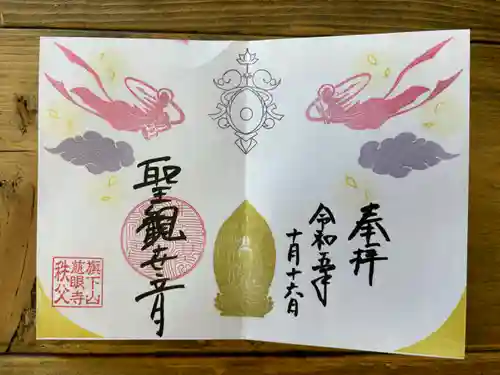 奉拝
令和五年
十月十六日
聖観世音
旗下山
龍眼寺
秩父